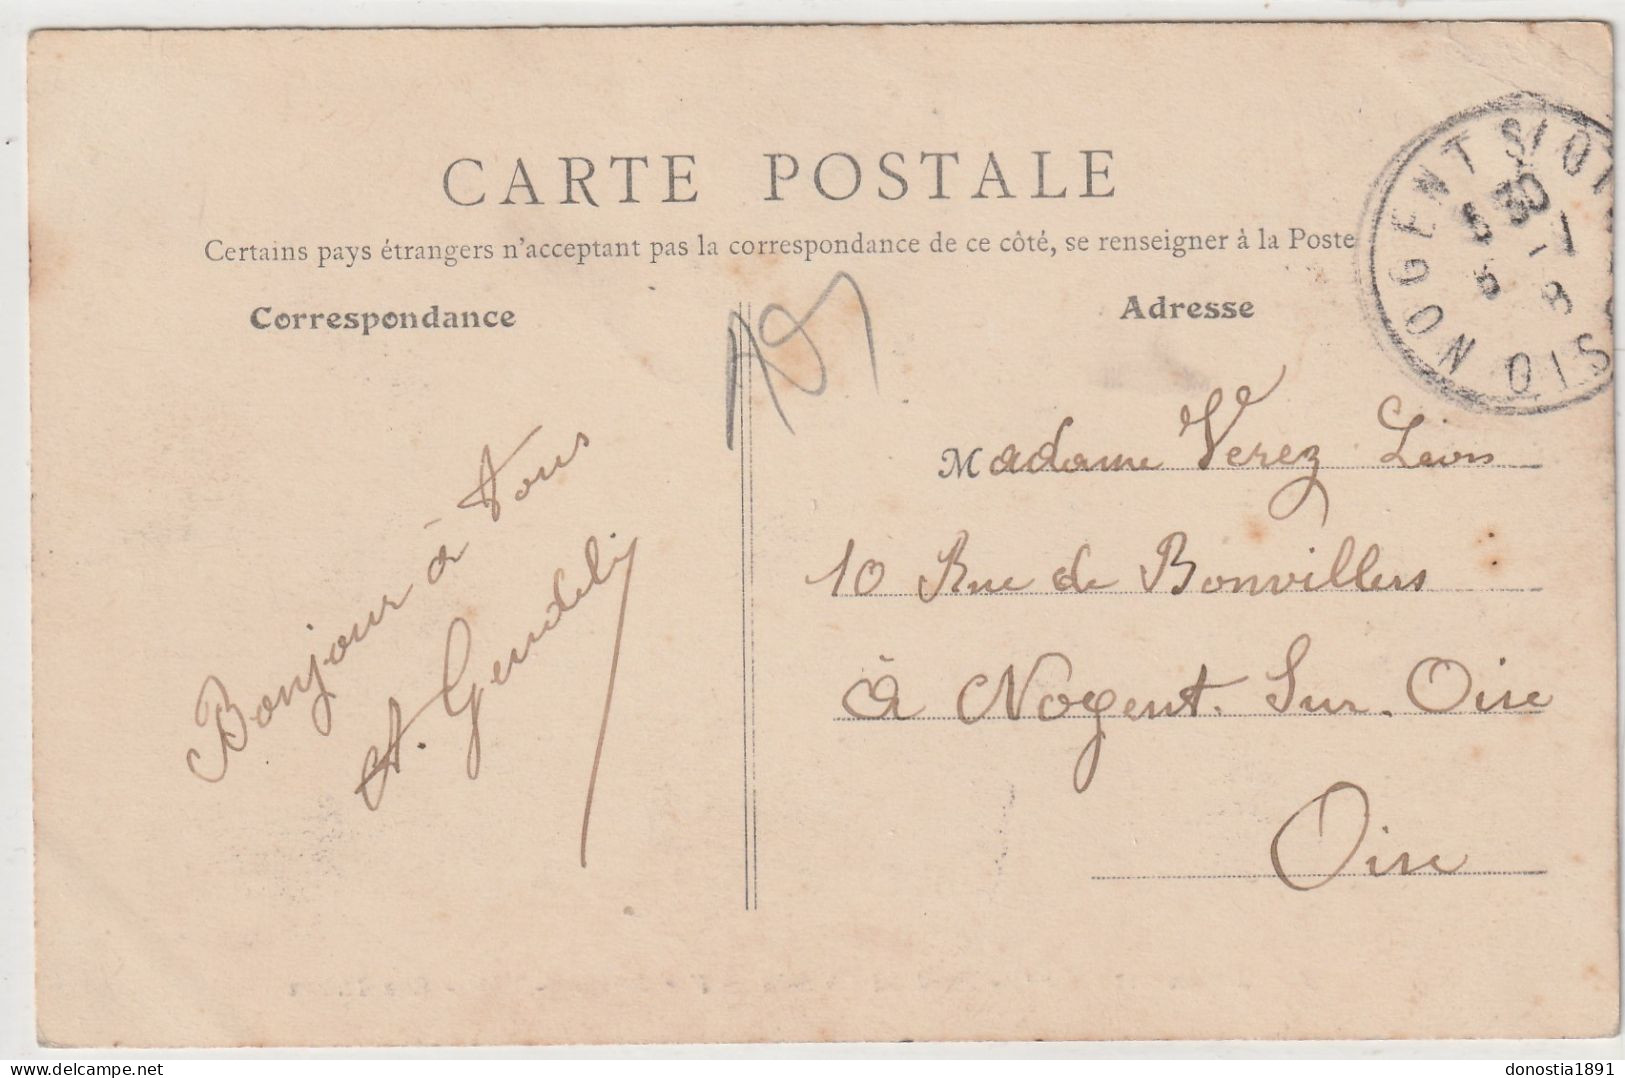 CARTE POSTALE
Certains pays étrangers n'acceptant pas la correspondance de ce côté, se renseigner à la Poste
Correspondance
Adresse
NOGENT S/ OISE
OISE
Bonjour à tous
Madame Verez Léon
10 Rue de Bonvillers
à Nogent. Sur. Oise
Oise
delcampe.net
donostia1891